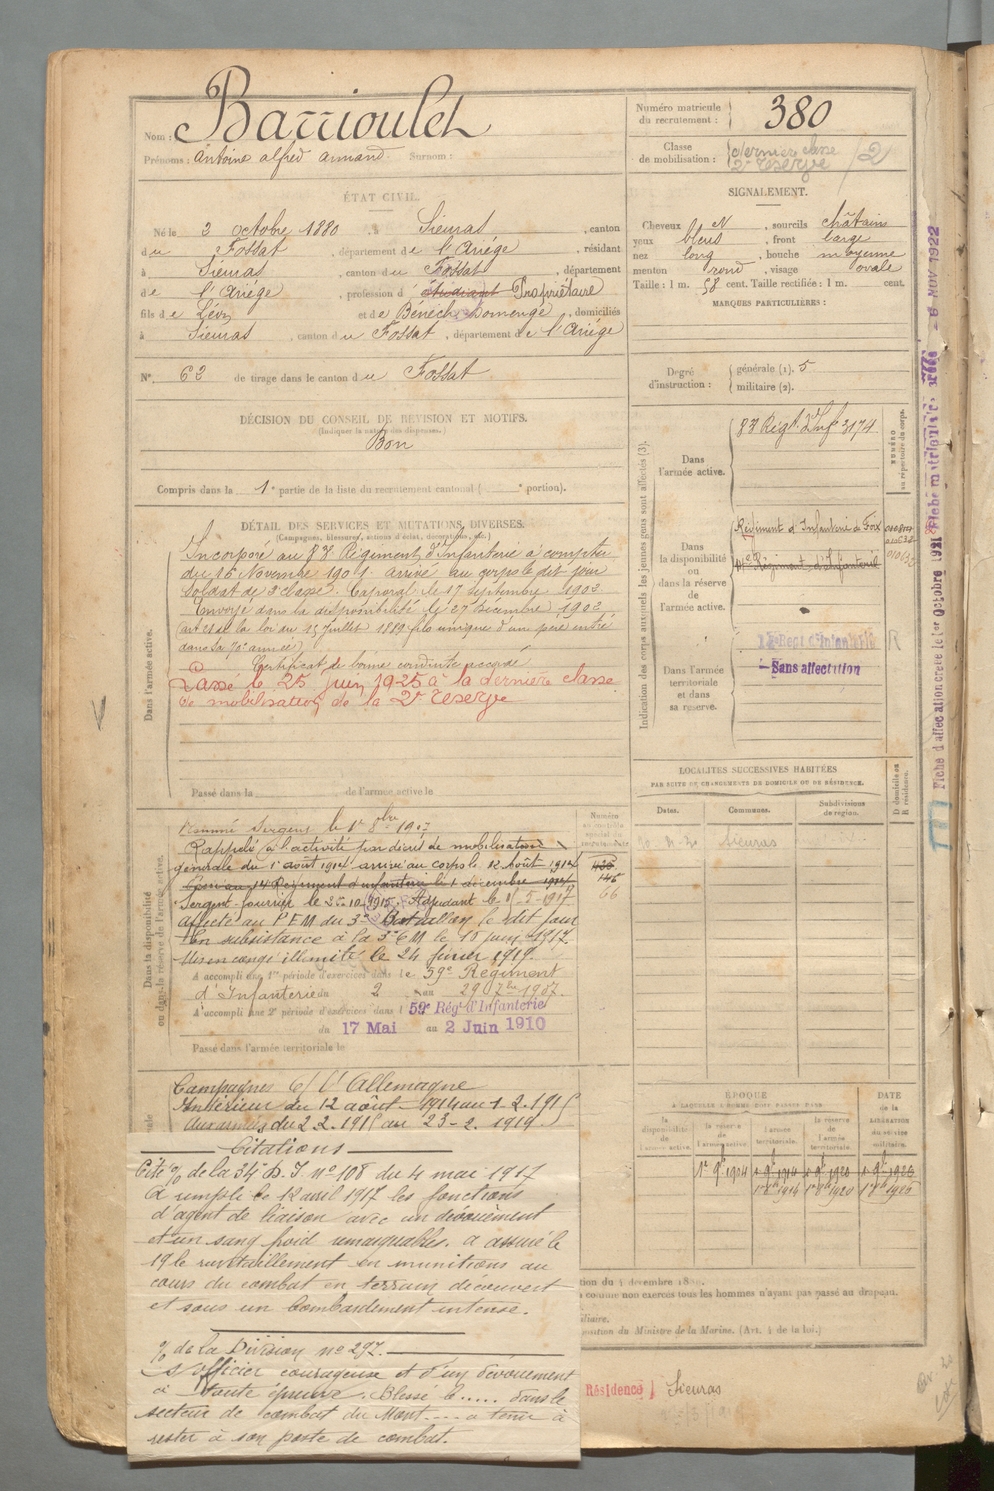 Nom : Barrioulet
Prénoms : Antoine alfred armand. Surnom :
ÉTAT CIVIL.
Né le 3 octobre 1880 à Sieuras, canton
du Fossat, département de l'Ariége, résidant
à Sieuras, canton du Fossat, département
de l'Ariége, profession d'étudiant Propriétaire
fils de Lévi et de Bénech Domenge, domiciliés
à Sieuras, canton du Fossat, département de l'Ariége
N° 62 de tirage dans le canton du Fossat
DÉCISION DU CONSEIL DE REVISION ET MOTIFS.
(Indiquer la nature des dispenses.)
Bon
Compris dans la 1e partie de la liste du recrutement cantonal ( e portion).
DÉTAIL DES SERVICES ET MUTATIONS DIVERSES.
(Campagnes, blessures, actions d'éclat, décorations, etc.)
Dans l'armée active.
Incorporé au 83 Régiment d'Infanterie à compter
du 16 Novembre 1901. arrivé au corps le dit jour
Soldat de 2e classe. Caporal le 17 septembre 1902
Envoyé dans la disponibilité le 27 décembre 1902
(art 21 de la loi du 15 Juillet 1889 fils unique d'un père entré
dans sa 70e année)
Certificat de bonne conduite accordé
Passé le 25 Juin 1925 à la dernière classe
de mobilisation de la 2e réserve
Passé dans la de l'armée active le
Dans la disponibilité
ou dans la réserve de l'armée active.
Nommé Sergent le 1er 8bre 1907
Rappelé à l'activité par décret de mobilisation
générale du 1er août 1914 arrivé au corps le 12 Août 1914
Passé au 14 Régiment d'infanterie le 1 décembre 1914
Sergent fourrier le 20-10-1915. Adjudant le 1-5-1917
affecté au P.E.M du 3e Bataillon le dit jour
En subsistance à la 3e C M le 10 juin 1917.
Mis en congé illimité le 24 février 1919.
A accompli une 1re période d'exercices dans le 59e Régiment
d'Infanterie du 2 au 29 7bre 1907.
A accompli une 2e période d'exercices dans le 59e Rég' d'Infanterie
du 17 Mai au 2 Juin 1910
Passé dans l'armée territoriale le
Campagnes C/ l'Allemagne
Intérieur du 12 août 1914 au 1-2-1915
Aux armées du 2-2-1915 au 23-2-1919.
Citations
Cité % de la 34e D. I n° 108 du 4 mai 1917
A rempli le 12 avril 1917 les fonctions
d'agent de liaison avec un dévouement
et un sang froid remarquables. a assuré le
19 le ravitaillement en munitions au
cours du combat en terrain découvert
et sous un bombardement intense.
% de la Division n° 297.
S/officier courageux et d'un dévouement
à toute épreuve. Blessé le..... dans le
secteur de combat du Mont.... a tenu à
rester à son poste de combat.
Numéro matricule
du recrutement : 380
Classe
de mobilisation : dernière classe
2e réserve
2
SIGNALEMENT.
Cheveux N, sourcils châtains
yeux bleus, front large
nez long, bouche moyenne
menton rond, visage ovale
Taille : 1 m. 58 cent. Taille rectifiée : 1 m. cent.
MARQUES PARTICULIÈRES :
Degré
d'instruction :
générale (1). 5
militaire (2).
Indication des corps auxquels les jeunes gens sont affectés (3).
NUMÉRO
au répertoire du corps.
Dans
l'armée active.
83 Régt d'Infie 3174
Dans
la disponibilité
ou
dans la réserve
de
l'armée active.
Régiment d'Infanterie de Foix
Régiment d'Infanterie
Dans l'armée
territoriale
et dans
sa réserve.
Regt d'Infanterie
R
Sans affectation
LOCALITÉS SUCCESSIVES HABITÉES
PAR SUITE DE CHANGEMENTS DE DOMICILE OU DE RÉSIDENCE.
D domicile ou
R résidence.
Dates.
Communes.
Subdivisions
de région.
Sieuras
66
ÉPOQUE
A LAQUELLE L'HOMME DOIT PASSER DANS
la
disponibilité
de l'armée
active.
la réserve
de
l'armée active.
l'armée
territoriale.
la réserve
de
l'armée
territoriale.
DATE
de la
LIBÉRATION
du service
militaire.
1er 9bre 1904
1er 8bre 1914
1er 8bre 1920
comme non exercés tous les hommes n'ayant pas passé au drapeau.
position du Ministre de la Marine. (Art. 4 de la loi.)
Résidence Sieuras
Fiche d'affectation créée le 1er Octobre 1921
6 NOV 1922